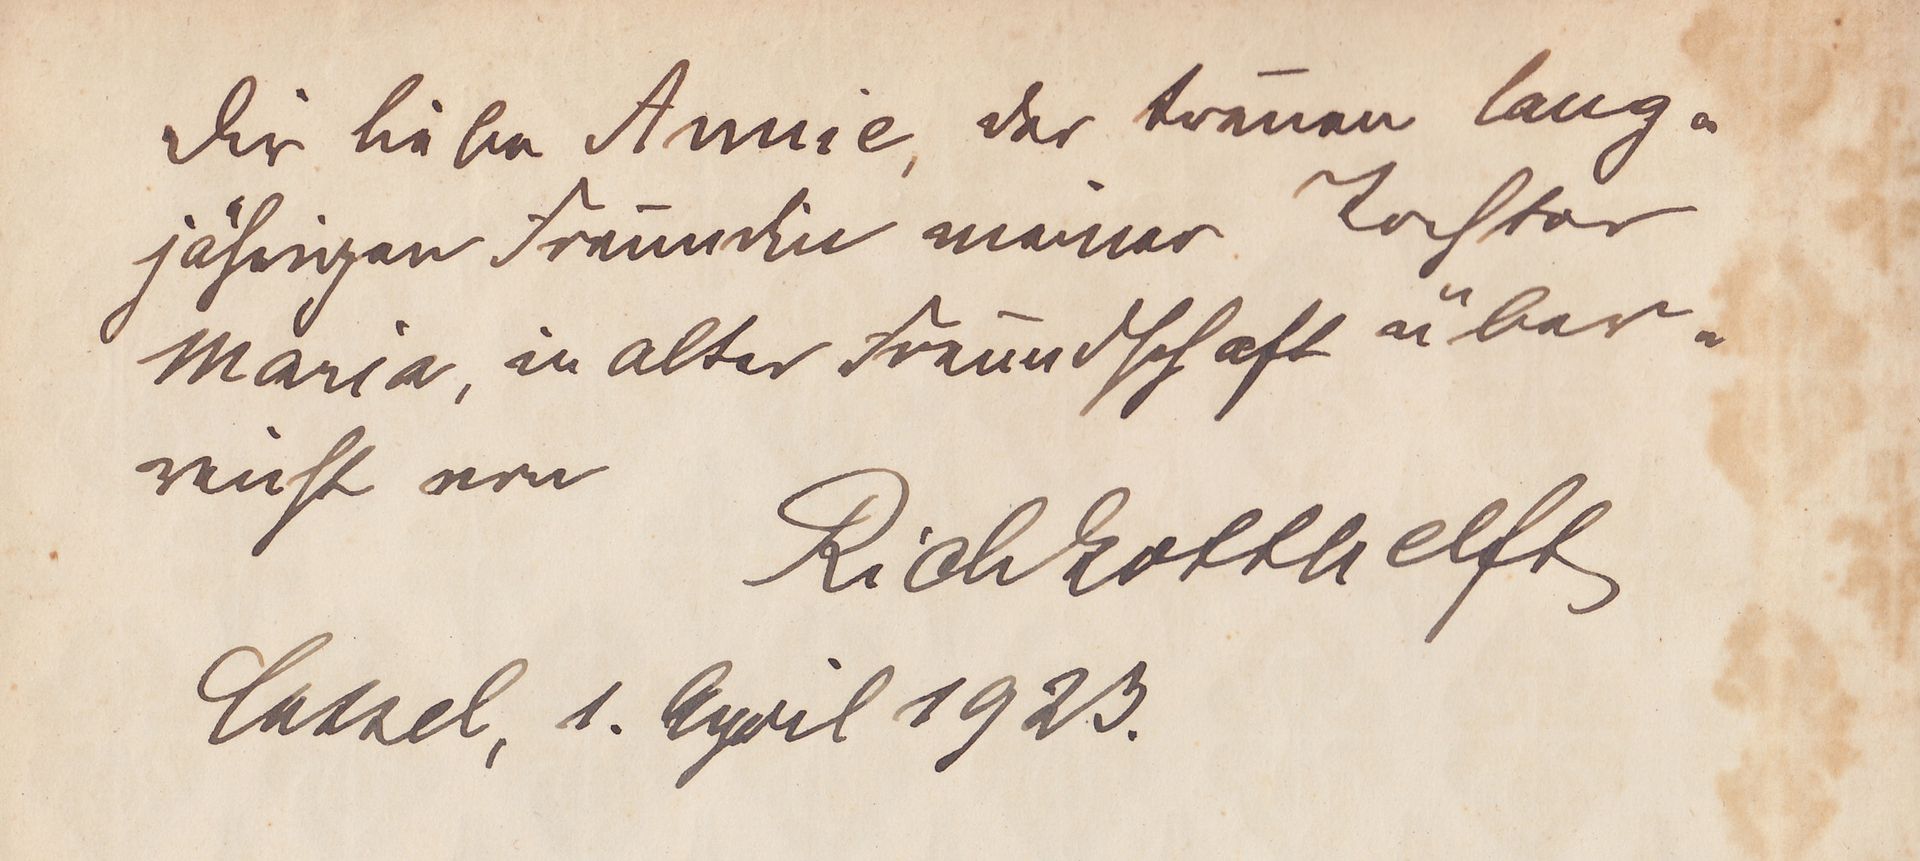 Dir liebe Annie, der treuen lang-
jährigen Freundin meiner Tochter
Maria, in alter Freundschaft über-
reicht von
Rich Gotthelft
Cassel, 1. April 1923.